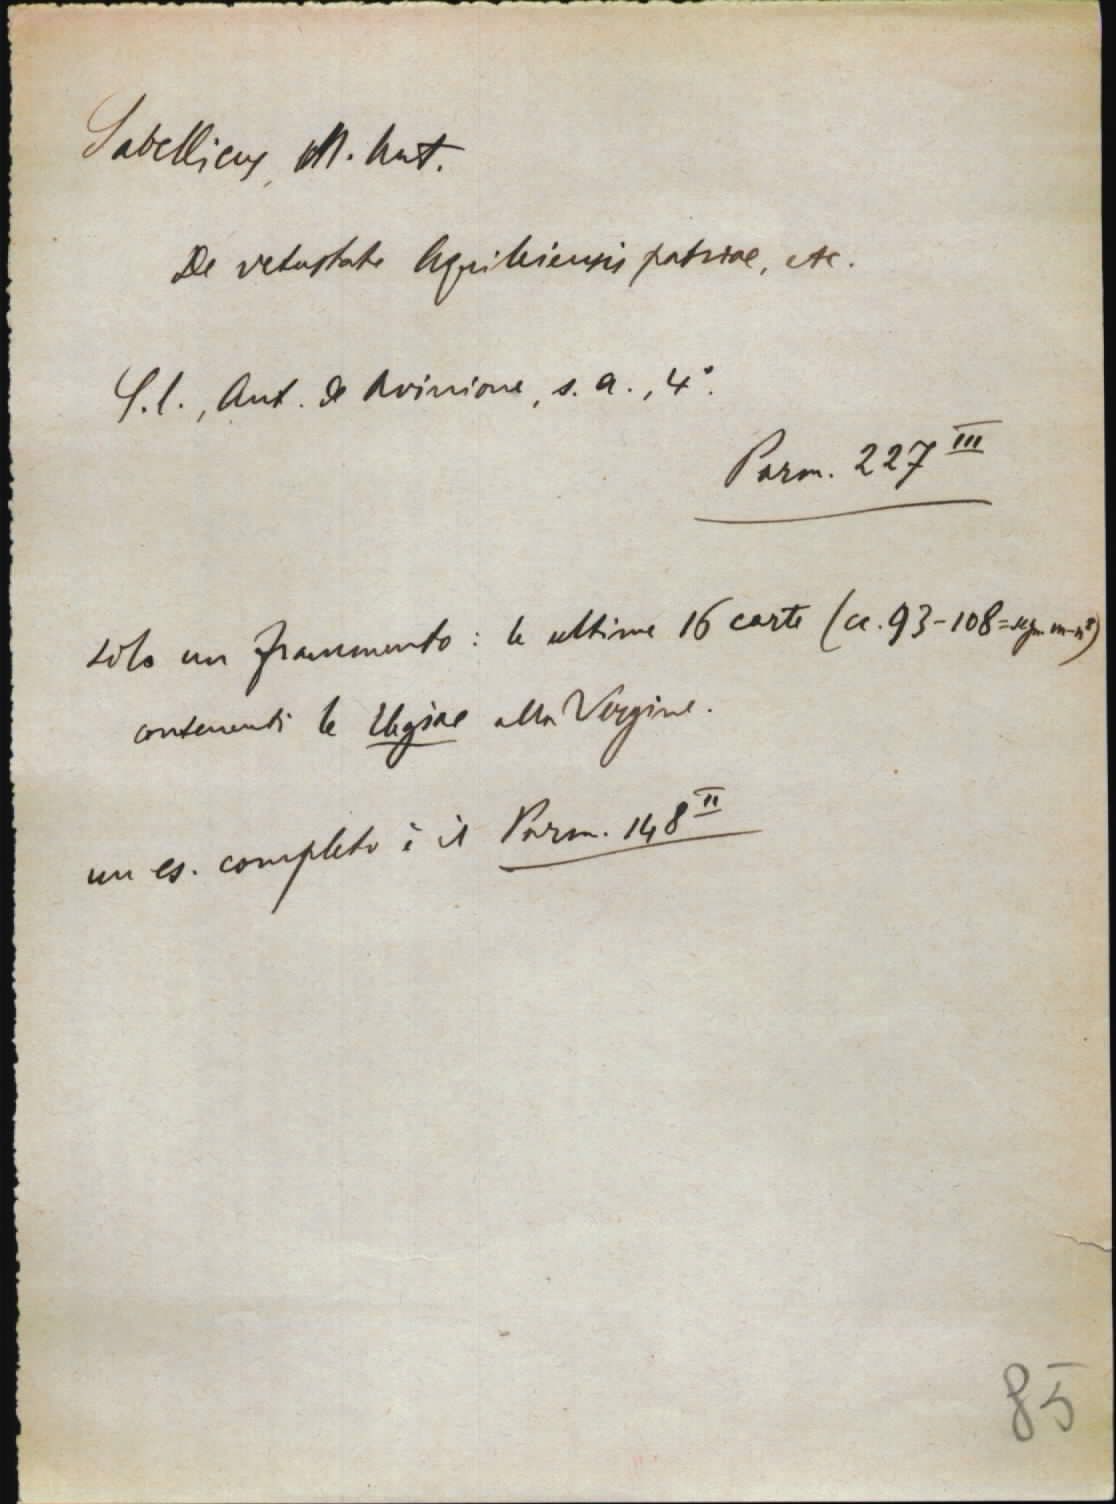 Sabellicus, M. Ant.
De vetustate Aquileiensis patriae, etc.
S.l., Ant. de Avinione, s. a., 4°.
Parm. 227 III
solo un frammento: le ultime 16 carte (cc. 93-108 = segn. m-n⁸)
contenenti le Elegiae alla Vergine.
un es. completo è il Parm. 148 II
85